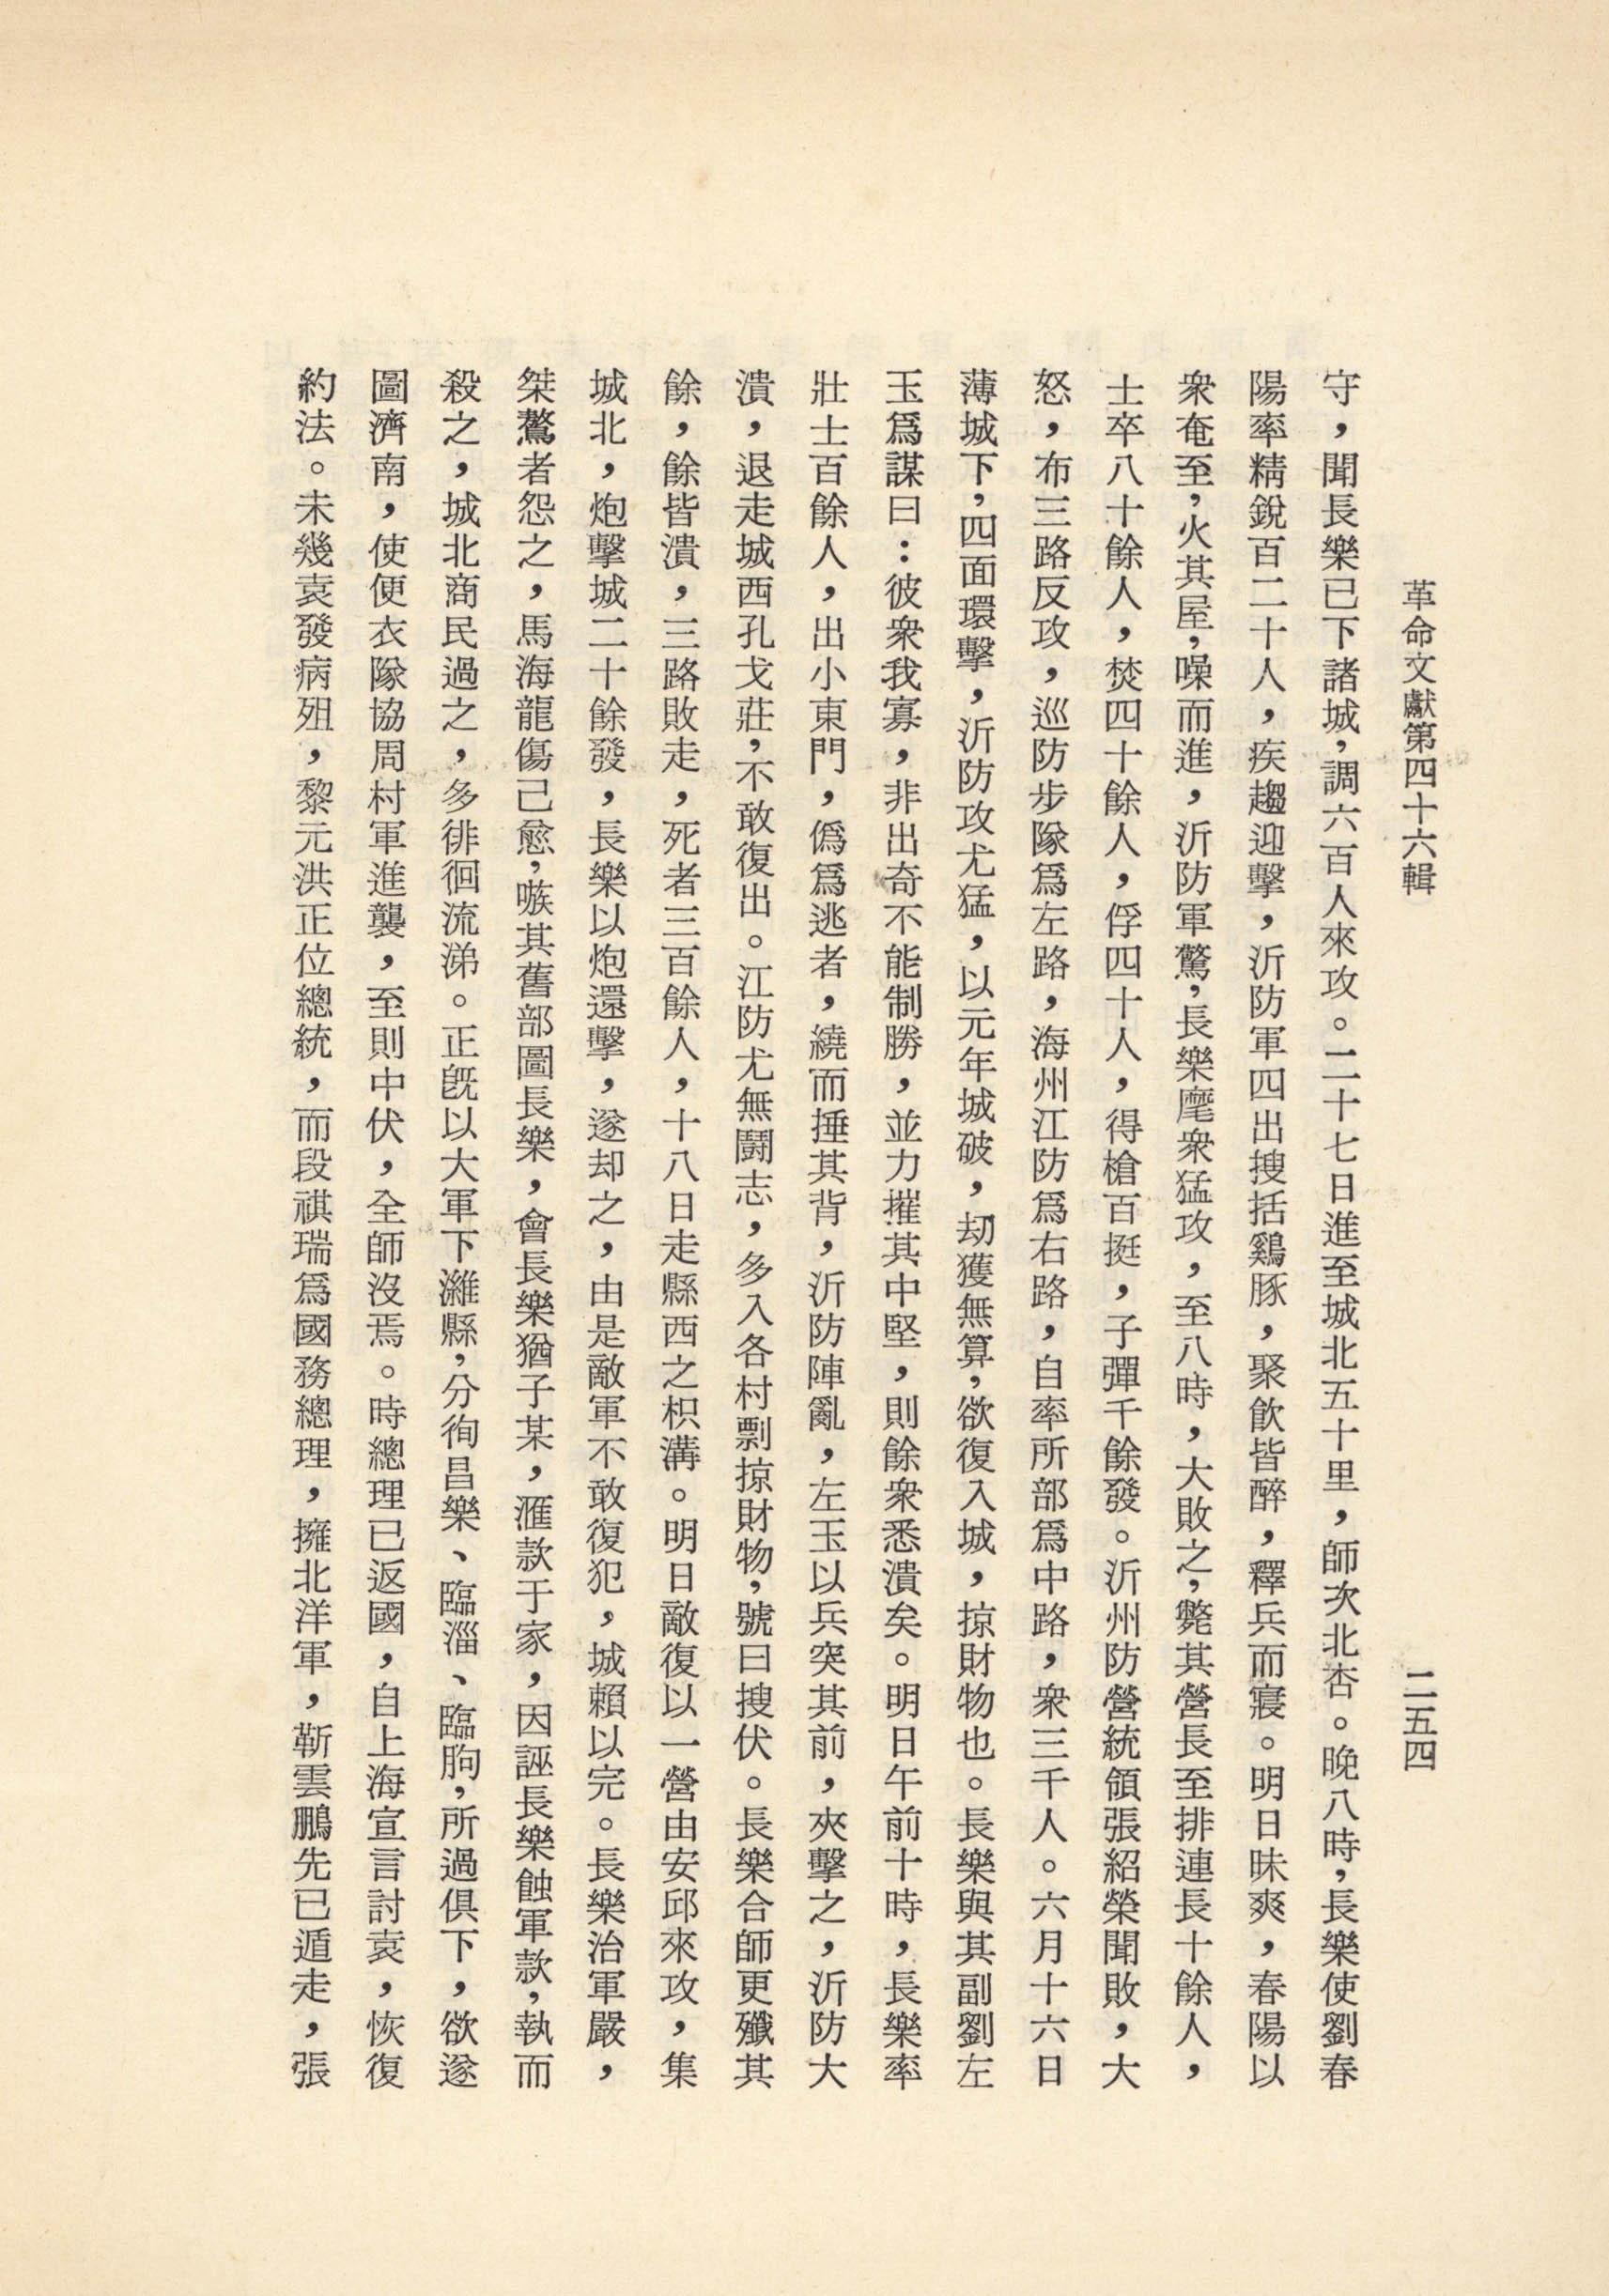 革命文獻第四十六輯
二五四
守，聞長樂已下諸城，調六百人來攻。二十七日進至城北五十里，師次北杏。晚八時，長樂使劉春
陽率精銳百二十人，疾趨迎擊，沂防軍四出搜括鷄豚，聚飲皆醉，釋兵而寢。明日昧爽，春陽以
衆奄至，火其屋，噪而進，沂防軍驚，長樂麾衆猛攻，至八時，大敗之，斃其營長至排連長十餘人，
士卒八十餘人，焚四十餘人，俘四十人，得槍百挺，子彈千餘發。沂州防營統領張紹榮聞敗，大
怒，布三路反攻，巡防步隊爲左路，海州江防爲右路，自率所部爲中路，衆三千人。六月十六日
薄城下，四面環擊，沂防攻尤猛，以元年城破，刼獲無算，欲復入城，掠財物也。長樂與其副劉左
玉爲謀曰：彼衆我寡，非出奇不能制勝，並力摧其中堅，則餘衆悉潰矣。明日午前十時，長樂率
壯士百餘人，出小東門，僞爲逃者，繞而捶其背，沂防陣亂，左玉以兵突其前，夾擊之，沂防大
潰，退走城西孔戈莊，不敢復出。江防尤無鬪志，多入各村剽掠財物，號曰搜伏。長樂合師更殲其
餘，餘皆潰，三路敗走，死者三百餘人，十八日走縣西之枳溝。明日敵復以一營由安邱來攻，集
城北，炮擊城二十餘發，長樂以炮還擊，遂却之，由是敵軍不敢復犯，城賴以完。長樂治軍嚴，
桀驁者怨之，馬海龍傷己愈，嗾其舊部圖長樂，會長樂猶子某，滙款于家，因誣長樂蝕軍款，執而
殺之，城北商民過之，多徘徊流涕。正旣以大軍下濰縣，分徇昌樂、臨淄、臨朐，所過俱下，欲遂
圖濟南，使便衣隊協周村軍進襲，至則中伏，全師沒焉。時總理已返國，自上海宣言討袁，恢復
約法。未幾袁發病殂，黎元洪正位總統，而段祺瑞爲國務總理，擁北洋軍，靳雲鵬先已遁走，張